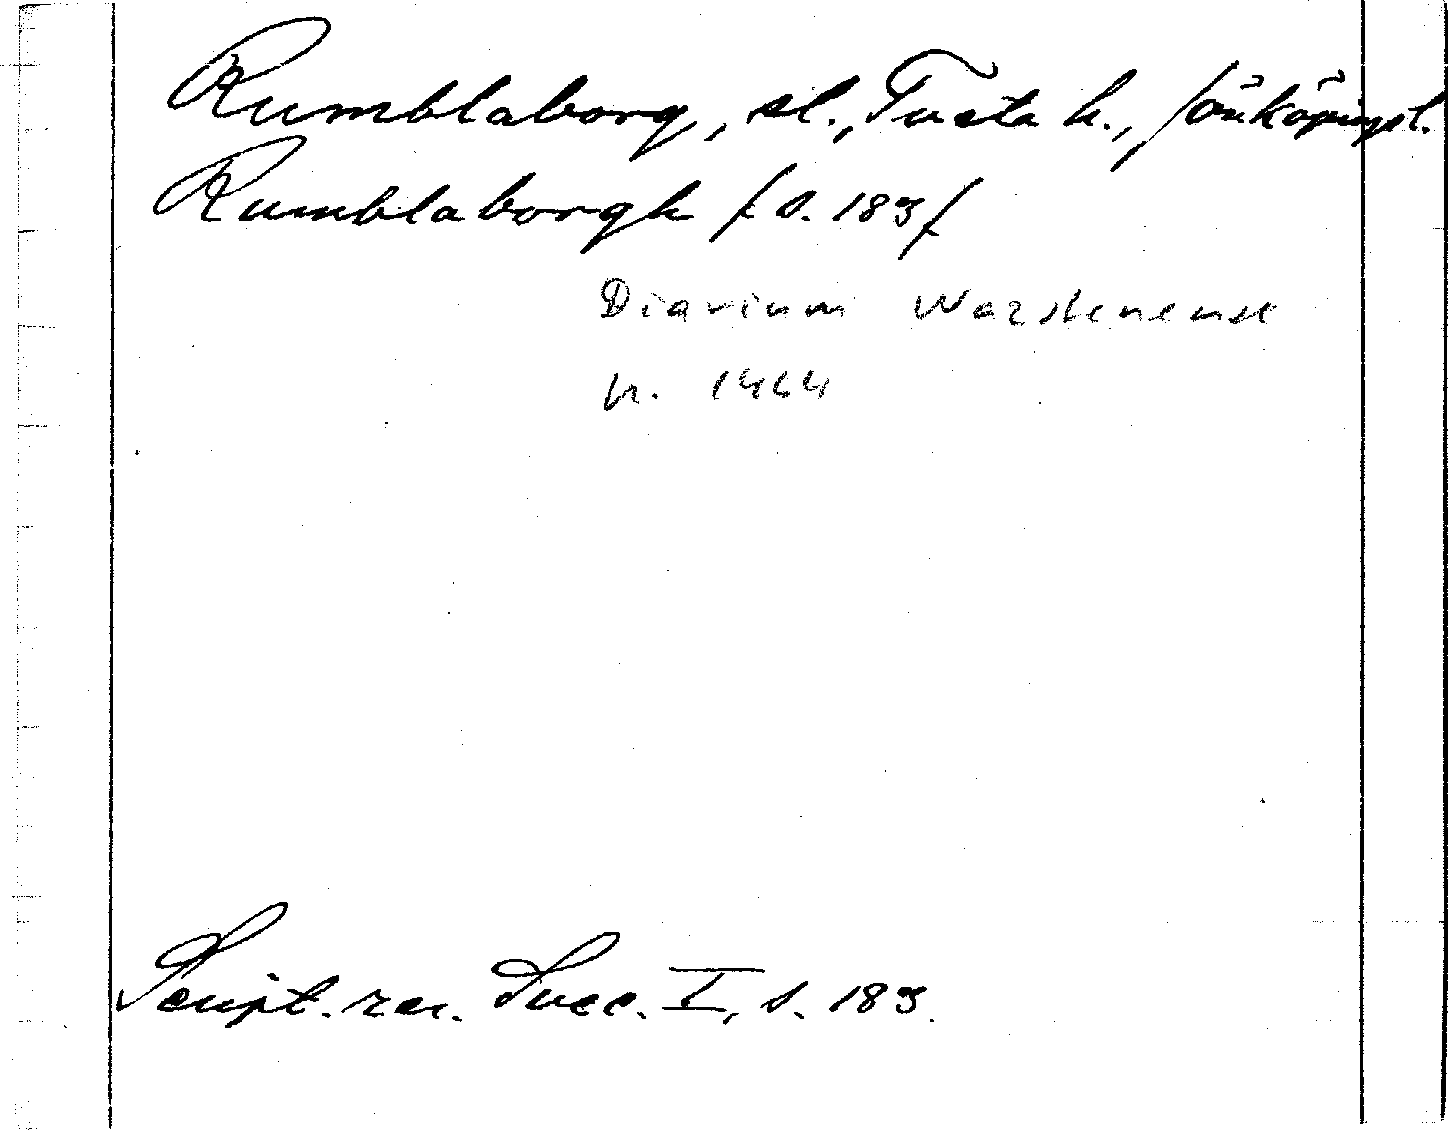 Rumblaborg, sl., Tveta h., Jönköpings l.
Rumblaborgh / s. 183 /
Diarium Wazstenense
n. 1464
Script. rer. Svec. I, s. 183.